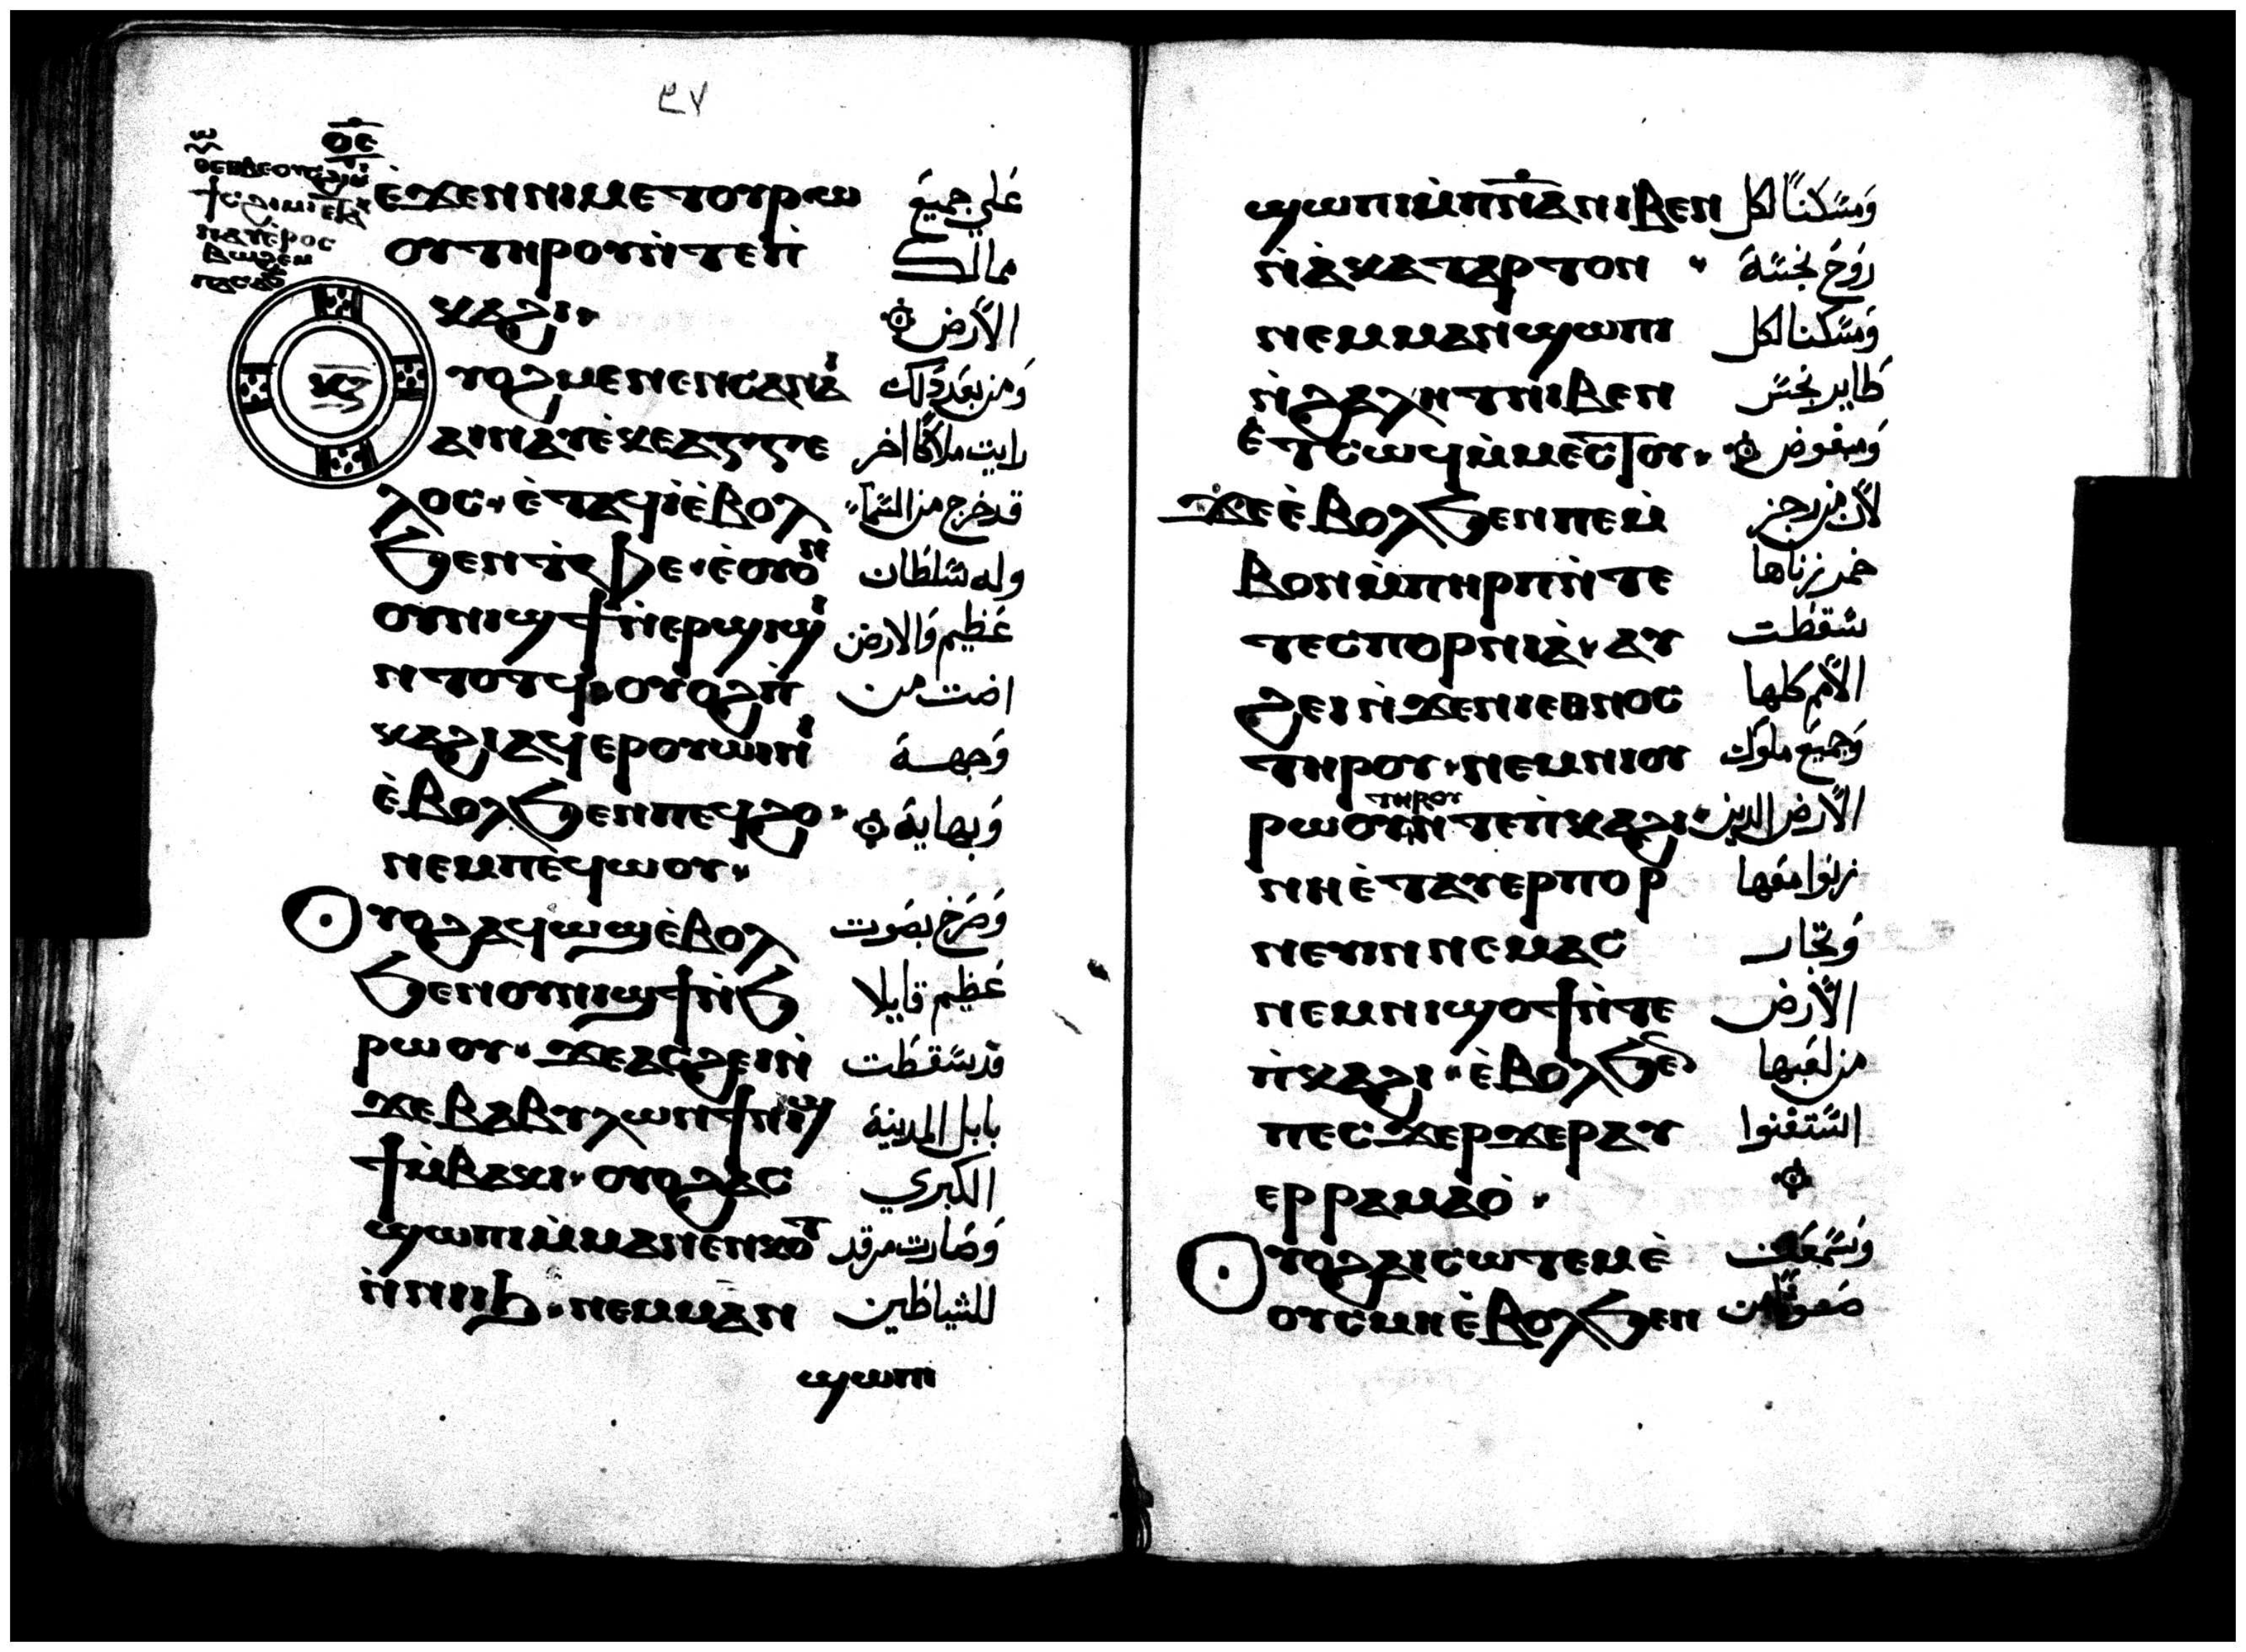 ٩٧
ⲟ̅ⲉ̅
ⲉ̀ϫⲉⲛⲛⲓⲙⲉⲧⲟⲩⲣⲱ
علي جميع
ⲟⲩⲧⲏⲣⲟⲩⲛ̀ⲧⲉⲡ̀
ممالك
ⲕⲁϩⲓ·
الارض
ⲕ̅ⲍ̅
ⲟⲩⲟϩⲙⲉⲛⲉⲛⲥⲁⲛⲁⲓ
ومن بعد ذلك
ⲁⲓⲛⲁⲩⲉ̀ⲕⲉⲁⲅⲅⲉ
رايت ملاكا اخر
ⲗⲟⲥ·ⲉ̀ⲧⲁϥⲓ̀ⲉ̀ⲃⲟⲗ
قد خرج من السماء
ϧⲉⲛⲧ̀ⲫⲉ·ⲉ̀ⲟⲩⲟⲛ
وله سلطان
ⲟⲩⲛⲓϣϯⲛ̀ⲉⲣϣⲓϣⲓ
عظيم والارض
ⲛⲧⲟⲧϥ·ⲟⲩⲟϩⲡ̀
اضت من
ⲕⲁϩⲓⲁϥⲉⲣⲟⲩⲱⲓⲛⲓ
وجهة
ⲉ̀ⲃⲟⲗϧⲉⲛⲡⲉϥϩⲟ·
وبهاية
ⲛⲉⲙⲡⲉϥⲱⲟⲩ·
ⲟⲩⲟϩⲁϥⲱϣⲉ̀ⲃⲟⲗ
وصرخ بصوت
ϧⲉⲛⲟⲩⲛⲓϣϯⲛ̀ϧ
عظيم قايلا
ⲣⲱⲟⲩ·ϫⲉⲁⲥϩⲉⲓⲛ̀
قد سقطت
ϫⲉⲃⲁⲃⲩⲗⲱⲛϯⲛⲓϣ
بابل المدينة
ϯⲙ̀ⲃⲁⲕⲓ·ⲟⲩⲟϩⲁⲥ
الكبري
ϣⲱⲡⲓⲙ̀ⲙⲁⲛⲉⲛⲕⲟⲧ
وصارت مرقد
ⲛ̀ⲛⲓⲓϧ·ⲛⲉⲙⲙⲁⲛ
للشياطين
ϣⲱⲡⲓ
ϣⲱⲡⲓⲙ̀ⲡ̅ⲛ̅ⲁ̅ⲛⲓⲃⲉⲛ
ومسكنا لكل
ⲛ̀ⲁ̀ⲕⲁⲧⲁⲣⲧⲟⲛ·
روح نجسة
ⲛⲉⲙⲙⲁⲛ̀ϣⲱⲡⲓ
ومسكنا لكل
ⲛ̀ϩⲁⲗⲏⲧⲛⲓⲃⲉⲛ
طاير نجس
ⲉ̀ⲧⲥⲱϥⲙ̀ⲙⲉⲥⲧⲟⲩ·
ومبغوض
ϫⲉⲉ̀ⲃⲟⲗϧⲉⲛⲡⲉⲙ̀
لان من رجز
ⲃⲟⲛⲙ̀ⲡⲏⲣⲡⲛ̀ⲧⲉ
خمر زناها
ⲧⲉⲥⲡⲟⲣⲛⲓⲁ̀·ⲁⲩ
سقطت
ϩⲉⲓⲛ̀ϫⲉⲛⲓⲉⲑⲛⲟⲥ
الامم كلها
ⲧⲏⲣⲟⲩ·ⲛⲉⲙⲛⲓⲟⲩ
وجميع ملوك
ⲧⲏⲣⲟⲩ
ⲣⲱⲟⲩⲛ̀ⲧⲉⲡ̀ⲕⲁϩⲓ·
الارض الدين
ⲛⲏⲉ̀ⲧⲁⲩⲉⲣⲡⲟⲣ
زنوا معها
ⲛⲉⲩⲓⲛⲛⲉⲙⲁⲥ
وتجار
ⲛⲉⲙⲛⲓϣⲟϯⲛ̀ⲧⲉ
الارض
ⲡ̀ⲕⲁϩⲓ·ⲉ̀ⲃⲟⲗϧⲉⲛ
من لعبها
ⲡⲉⲥϫⲉⲣϫⲉⲣⲁⲩ
استغنوا
ⲉⲣⲣⲁⲙⲁⲟ̀·
ⲟⲩⲟϩⲁⲓⲥⲱⲧⲉⲙⲉ̀
وسمعت
ⲟⲩⲥⲙⲏⲉ̀ⲃⲟⲗϧⲉⲛ